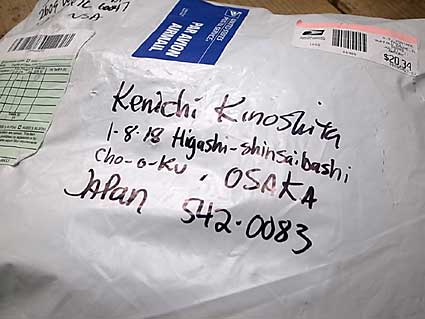 USA
PAR AVION
AIRMAIL
UNITED STATES
POSTAL SERVICE
$20.34
Kenichi Kinoshita
1-8-18 Higashi-shinsaibashi
Cho-o-Ku, OSAKA
JAPAN 542-0083